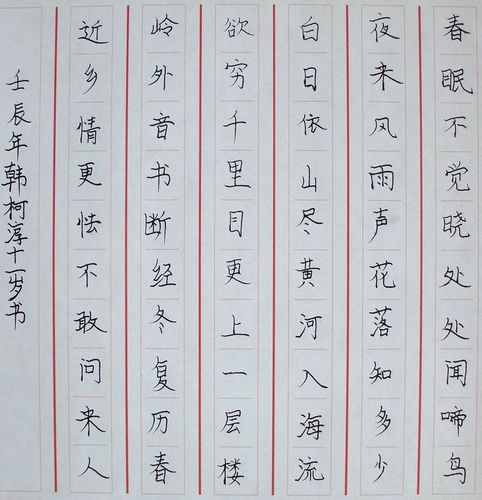 春眠不觉晓处处闻啼鸟
夜来风雨声花落知多少
白日依山尽黄河入海流
欲穷千里目更上一层楼
岭外音书断经冬复历春
近乡情更怯不敢问来人
壬辰年韩柯淳十一岁书